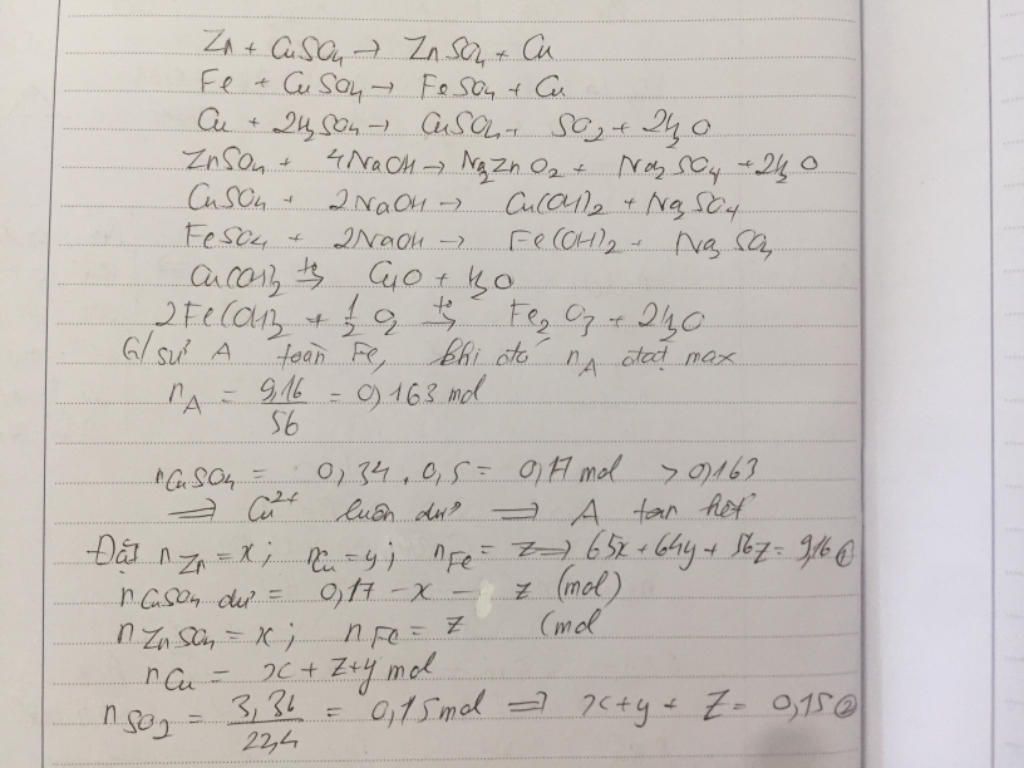 Zn + CuSO4 → ZnSO4 + Cu
Fe + CuSO4 → FeSO4 + Cu
Cu + 2H2SO4 → CuSO4 + SO2 + 2H2O
ZnSO4 + 4NaOH → Na2ZnO2 + Na2SO4 + 2H2O
CuSO4 + 2NaOH → Cu(OH)2 + Na2SO4
FeSO4 + 2NaOH → Fe(OH)2 + Na2SO4
Cu(OH)2 t°→ CuO + H2O
2Fe(OH)2 + 1/2 O2 t°→ Fe2O3 + 2H2O
G/sử A toàn Fe, khi đó nA đạt max
nA = 9,16/56 = 0,163 mol
nCuSO4 = 0,34 . 0,5 = 0,17 mol > 0,163
⇒ Cu2+ luôn dư ⇒ A tan hết
Đặt nZn = x; nCu = y; nFe = z ⇒ 65x + 64y + 56z = 9,16 ①
nCuSO4 dư = 0,17 - x - z (mol)
nZnSO4 = x; nFe = z (mol
nCu = x + z + y mol
nSO2 = 3,36/22,4 = 0,15 mol ⇒ x + y + z = 0,15 ②